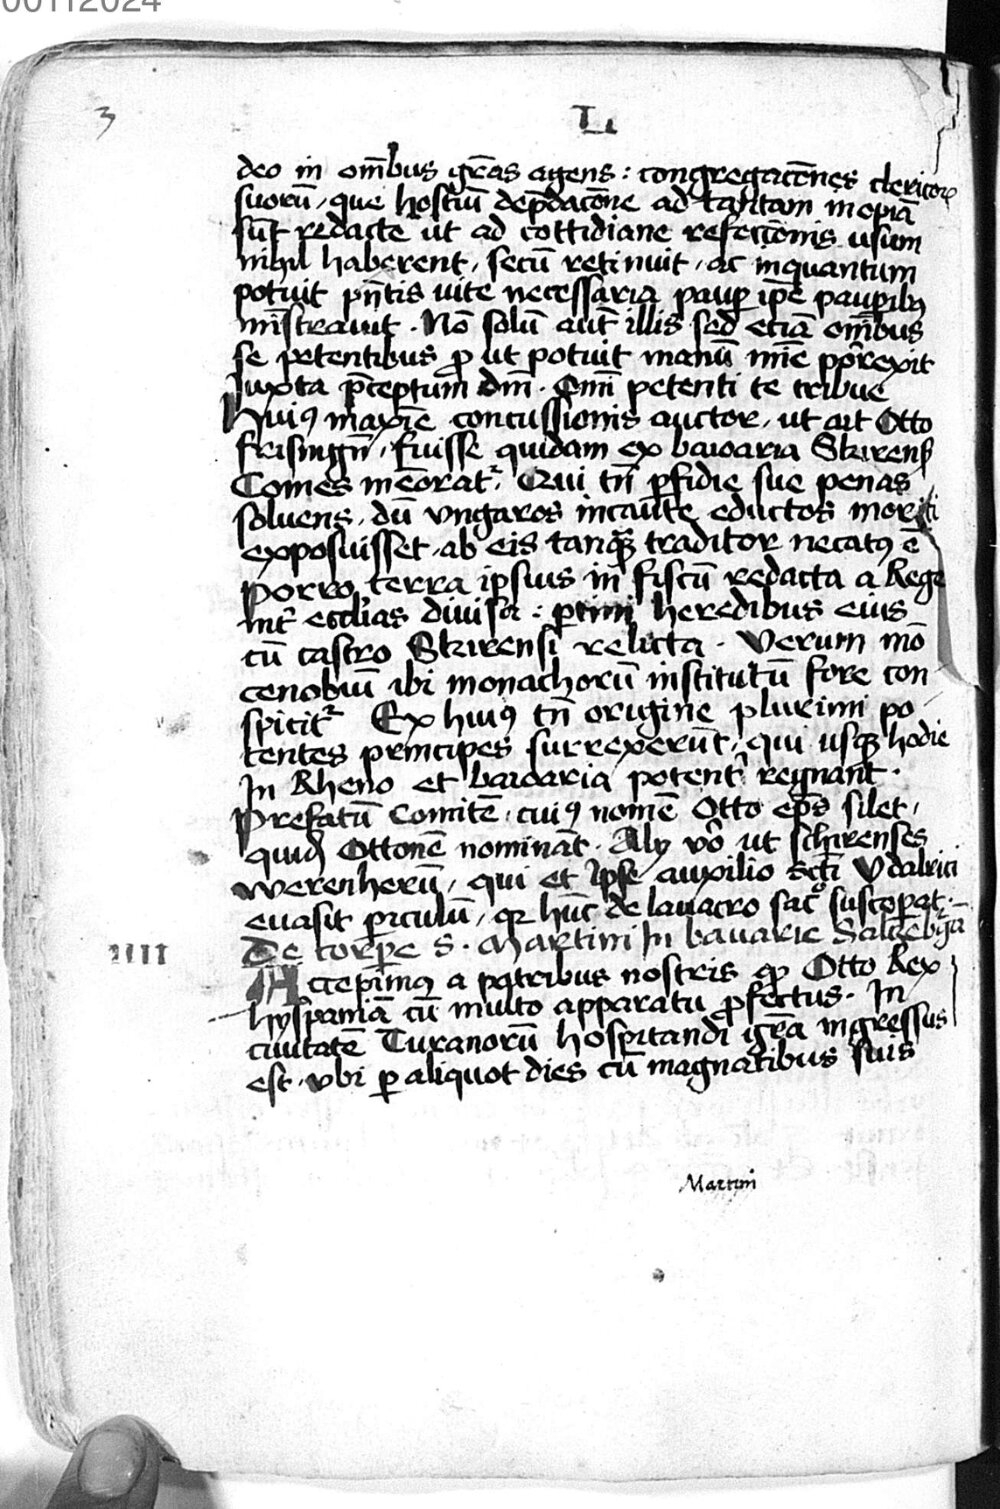 00112024
3
L
deo in om̄bus gr̄as agens : congregac̄ones clericoꝝ
suorū, que hostiū dep̄dac̄one ad tantam inopiā
sūt redacte ut ad cottidiane refecc̄onis usum
nihil haberent, secū retinuit, ac inquantum
potuit pn̄tis uite necessaria paup̱ ip̄e paup̱ibꝫ
mīstrauit . Nō solū aūt illis sed etiā om̄ibus
se petentibus ꝓ ut potuit manū mīe porrexit
Juxta p̄ceptum dn̄i . Om̄i petenti te tribue
Huiꝰ maxīe concussionis auctor, ut ait Otto
frisingn̄, fuisse quidam ex baioaria Skirenß
Comes mēorat᷑ . Qui tn̄ ꝑfidie sue penas
soluens, dū vngaros incaute eductos morti
exposuisset, ab eis tanqꝫ traditor necatꝰ ē
porro terra ipsius in fiscū redacta a Rege
int̄ ecclīas diuisa : partim heredibus eius
cū castro Skirensi relicta . Verum mō
cenobiū ibi monachorū institutū fore con
spicit᷑ Ex huiꝰ tn̄ origine plurimi po
tentes principes surrexerūt, qui usqꝫ hodie
In Rheno et baioaria potent᷑ regnant .
Prefatū Comitē, cuiꝰ nomē Otto ep̄s silet,
quidā Ottonē nomināt . Aly vō ut schirenses
werenherū, qui et ipse auxilio sct̄i Vdalrici
euasit ꝑiculū, qꝛ hūc de lauacro sacͦ susceperat .
IIII
De corꝑe S . Martini In bauarie Salczebgā
Accepimꝰ a patribus nostris ꝙ Otto Rex
hyspaniā cū multo apparatu ꝓfectus . In
ciuitatē Turanorū hospitandi gr̄a ingressus
est . vbi ꝑ aliquot dies cū magnatibus suis
Martini